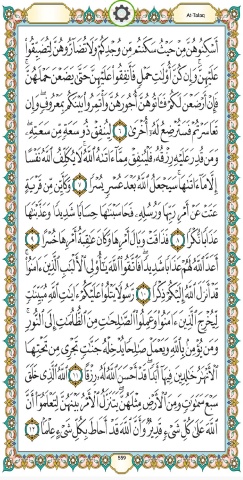 At-Talaq
أَسْكِنُوهُنَّ مِنْ حَيْثُ سَكَنتُم مِّن وُجْدِكُمْ وَلَا تُضَآرُّوهُنَّ لِتُضَيِّقُوا۟
عَلَيْهِنَّ ۚ وَإِن كُنَّ أُو۟لَٰتِ حَمْلٍ فَأَنفِقُوا۟ عَلَيْهِنَّ حَتَّىٰ يَضَعْنَ حَمْلَهُنَّ ۚ
فَإِنْ أَرْضَعْنَ لَكُمْ فَـَٔاتُوهُنَّ أُجُورَهُنَّ ۖ وَأْتَمِرُوا۟ بَيْنَكُم بِمَعْرُوفٍ ۖ وَإِن
تَعَاسَرْتُمْ فَسَتُرْضِعُ لَهُۥٓ أُخْرَىٰ ٦ لِيُنفِقْ ذُو سَعَةٍ مِّن سَعَتِهِۦ ۖ
وَمَن قُدِرَ عَلَيْهِ رِزْقُهُۥ فَلْيُنفِقْ مِمَّآ ءَاتَىٰهُ ٱللَّهُ ۚ لَا يُكَلِّفُ ٱللَّهُ نَفْسًا
إِلَّا مَآ ءَاتَىٰهَا ۚ سَيَجْعَلُ ٱللَّهُ بَعْدَ عُسْرٍ يُسْرًا ٧ وَكَأَيِّن مِّن قَرْيَةٍ
عَتَتْ عَنْ أَمْرِ رَبِّهَا وَرُسُلِهِۦ فَحَاسَبْنَٰهَا حِسَابًا شَدِيدًا وَعَذَّبْنَٰهَا
عَذَابًا نُّكْرًا ٨ فَذَاقَتْ وَبَالَ أَمْرِهَا وَكَانَ عَٰقِبَةُ أَمْرِهَا خُسْرًا ٩
أَعَدَّ ٱللَّهُ لَهُمْ عَذَابًا شَدِيدًا ۖ فَٱتَّقُوا۟ ٱللَّهَ يَٰٓأُو۟لِى ٱلْأَلْبَٰبِ ٱلَّذِينَ ءَامَنُوا۟ ۚ
قَدْ أَنزَلَ ٱللَّهُ إِلَيْكُمْ ذِكْرًا ١٠ رَّسُولًا يَتْلُوا۟ عَلَيْكُمْ ءَايَٰتِ ٱللَّهِ مُبَيِّنَٰتٍ
لِّيُخْرِجَ ٱلَّذِينَ ءَامَنُوا۟ وَعَمِلُوا۟ ٱلصَّٰلِحَٰتِ مِنَ ٱلظُّلُمَٰتِ إِلَى ٱلنُّورِ ۚ
وَمَن يُؤْمِنۢ بِٱللَّهِ وَيَعْمَلْ صَٰلِحًا يُدْخِلْهُ جَنَّٰتٍ تَجْرِى مِن تَحْتِهَا
ٱلْأَنْهَٰرُ خَٰلِدِينَ فِيهَآ أَبَدًا ۖ قَدْ أَحْسَنَ ٱللَّهُ لَهُۥ رِزْقًا ١١ ٱللَّهُ ٱلَّذِى خَلَقَ
سَبْعَ سَمَٰوَٰتٍ وَمِنَ ٱلْأَرْضِ مِثْلَهُنَّ يَتَنَزَّلُ ٱلْأَمْرُ بَيْنَهُنَّ لِتَعْلَمُوٓا۟ أَنَّ
ٱللَّهَ عَلَىٰ كُلِّ شَىْءٍ قَدِيرٌ وَأَنَّ ٱللَّهَ قَدْ أَحَاطَ بِكُلِّ شَىْءٍ عِلْمًۢا ١٢
559